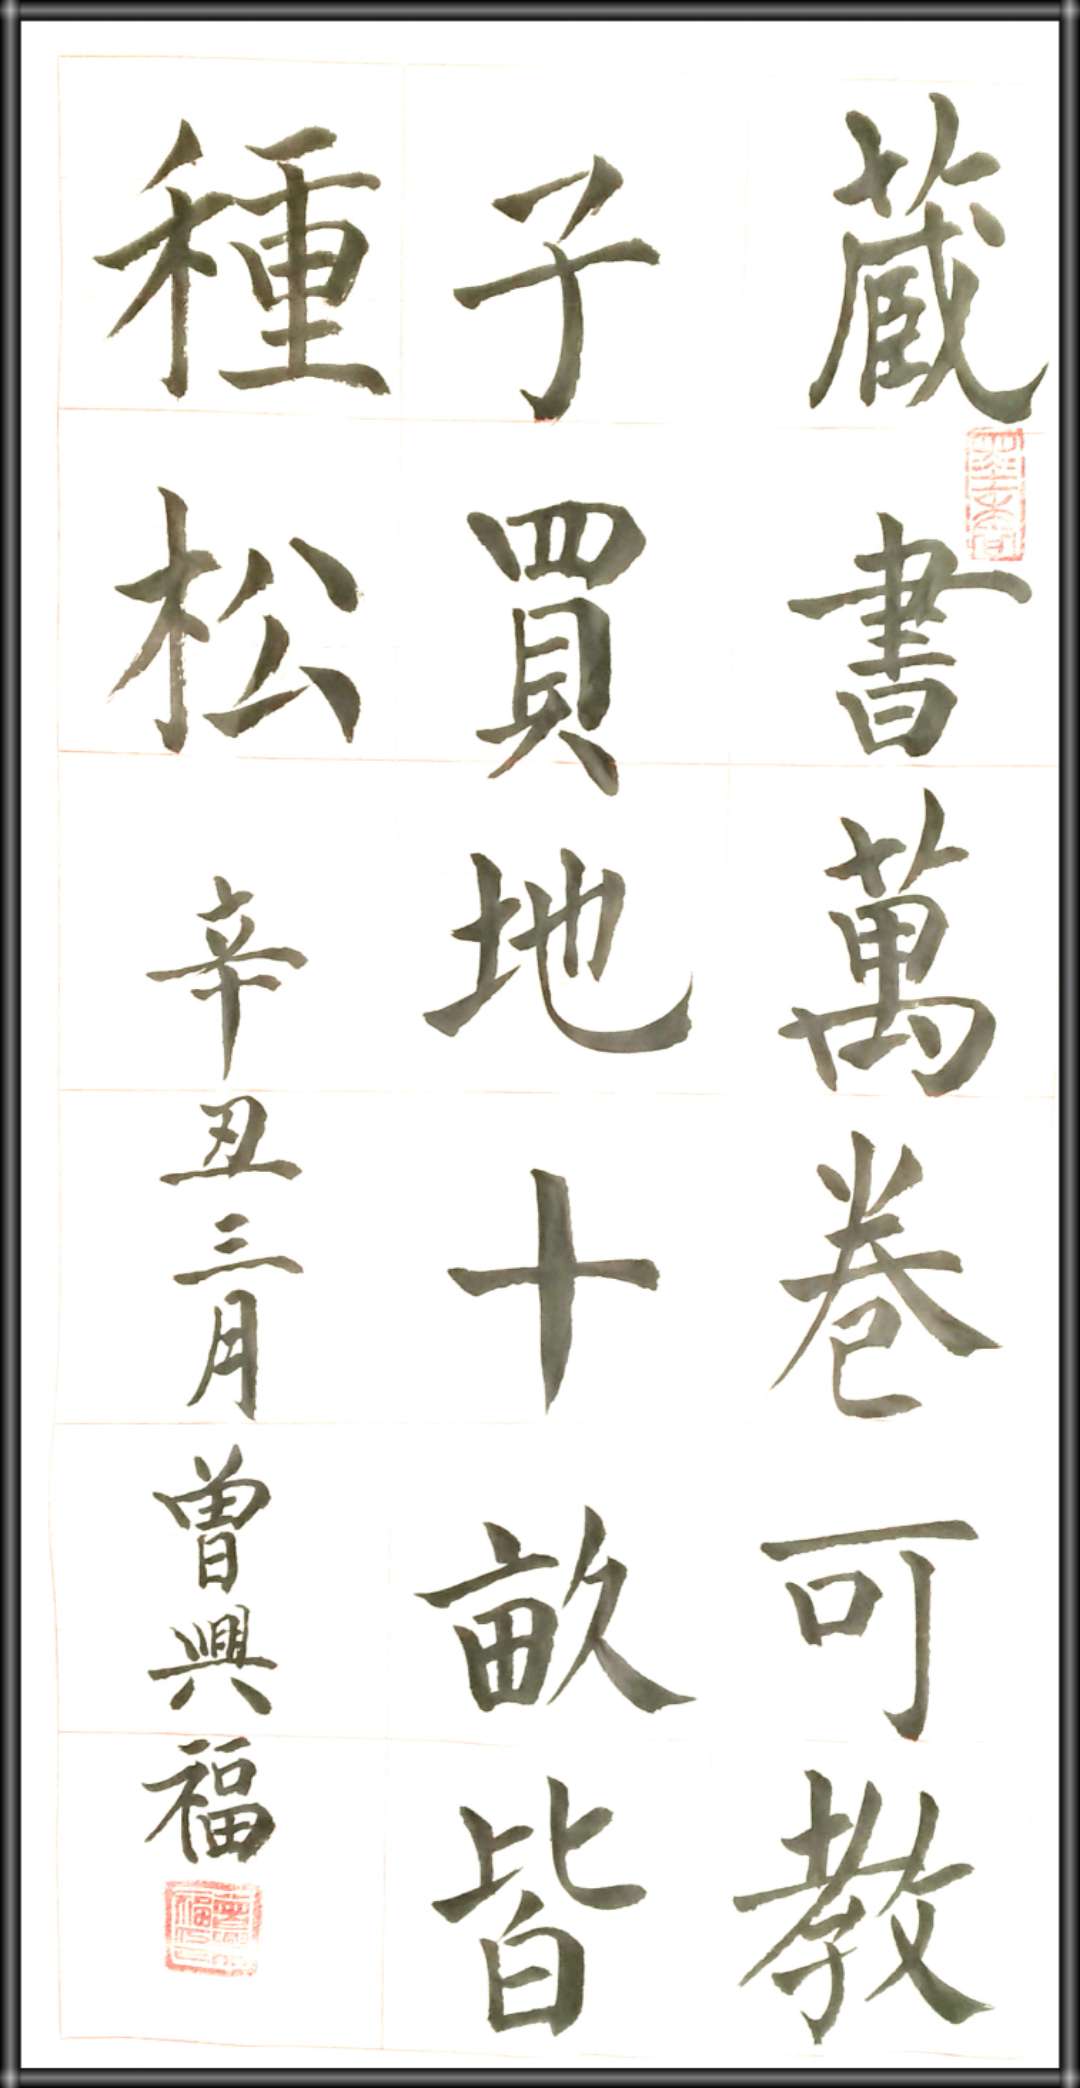 藏書萬卷可教
子買地十畝皆
種松
辛丑三月曾興福